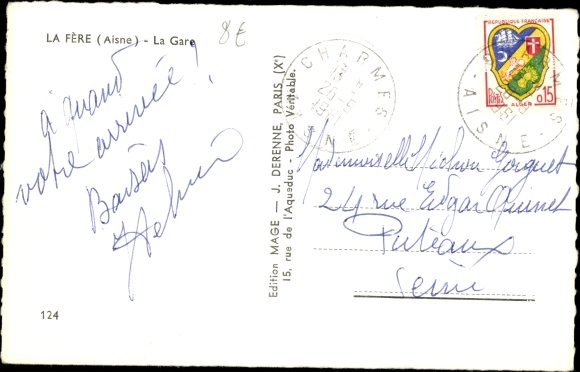 LA FÈRE (Aisne) - La Gare
8€
à quand
votre arrivée!
Baisers
124
Edition MAGE — J. DERENNE, PARIS (Xe)
15, rue de l'Aqueduc - Photo Véritable.
CHARMES
AISNE
REPUBLIQUE FRANÇAISE
Postes
0,15
ALGER
AISNE
Mademoiselle
24 rue Edgar Quinet
Puteaux
Seine